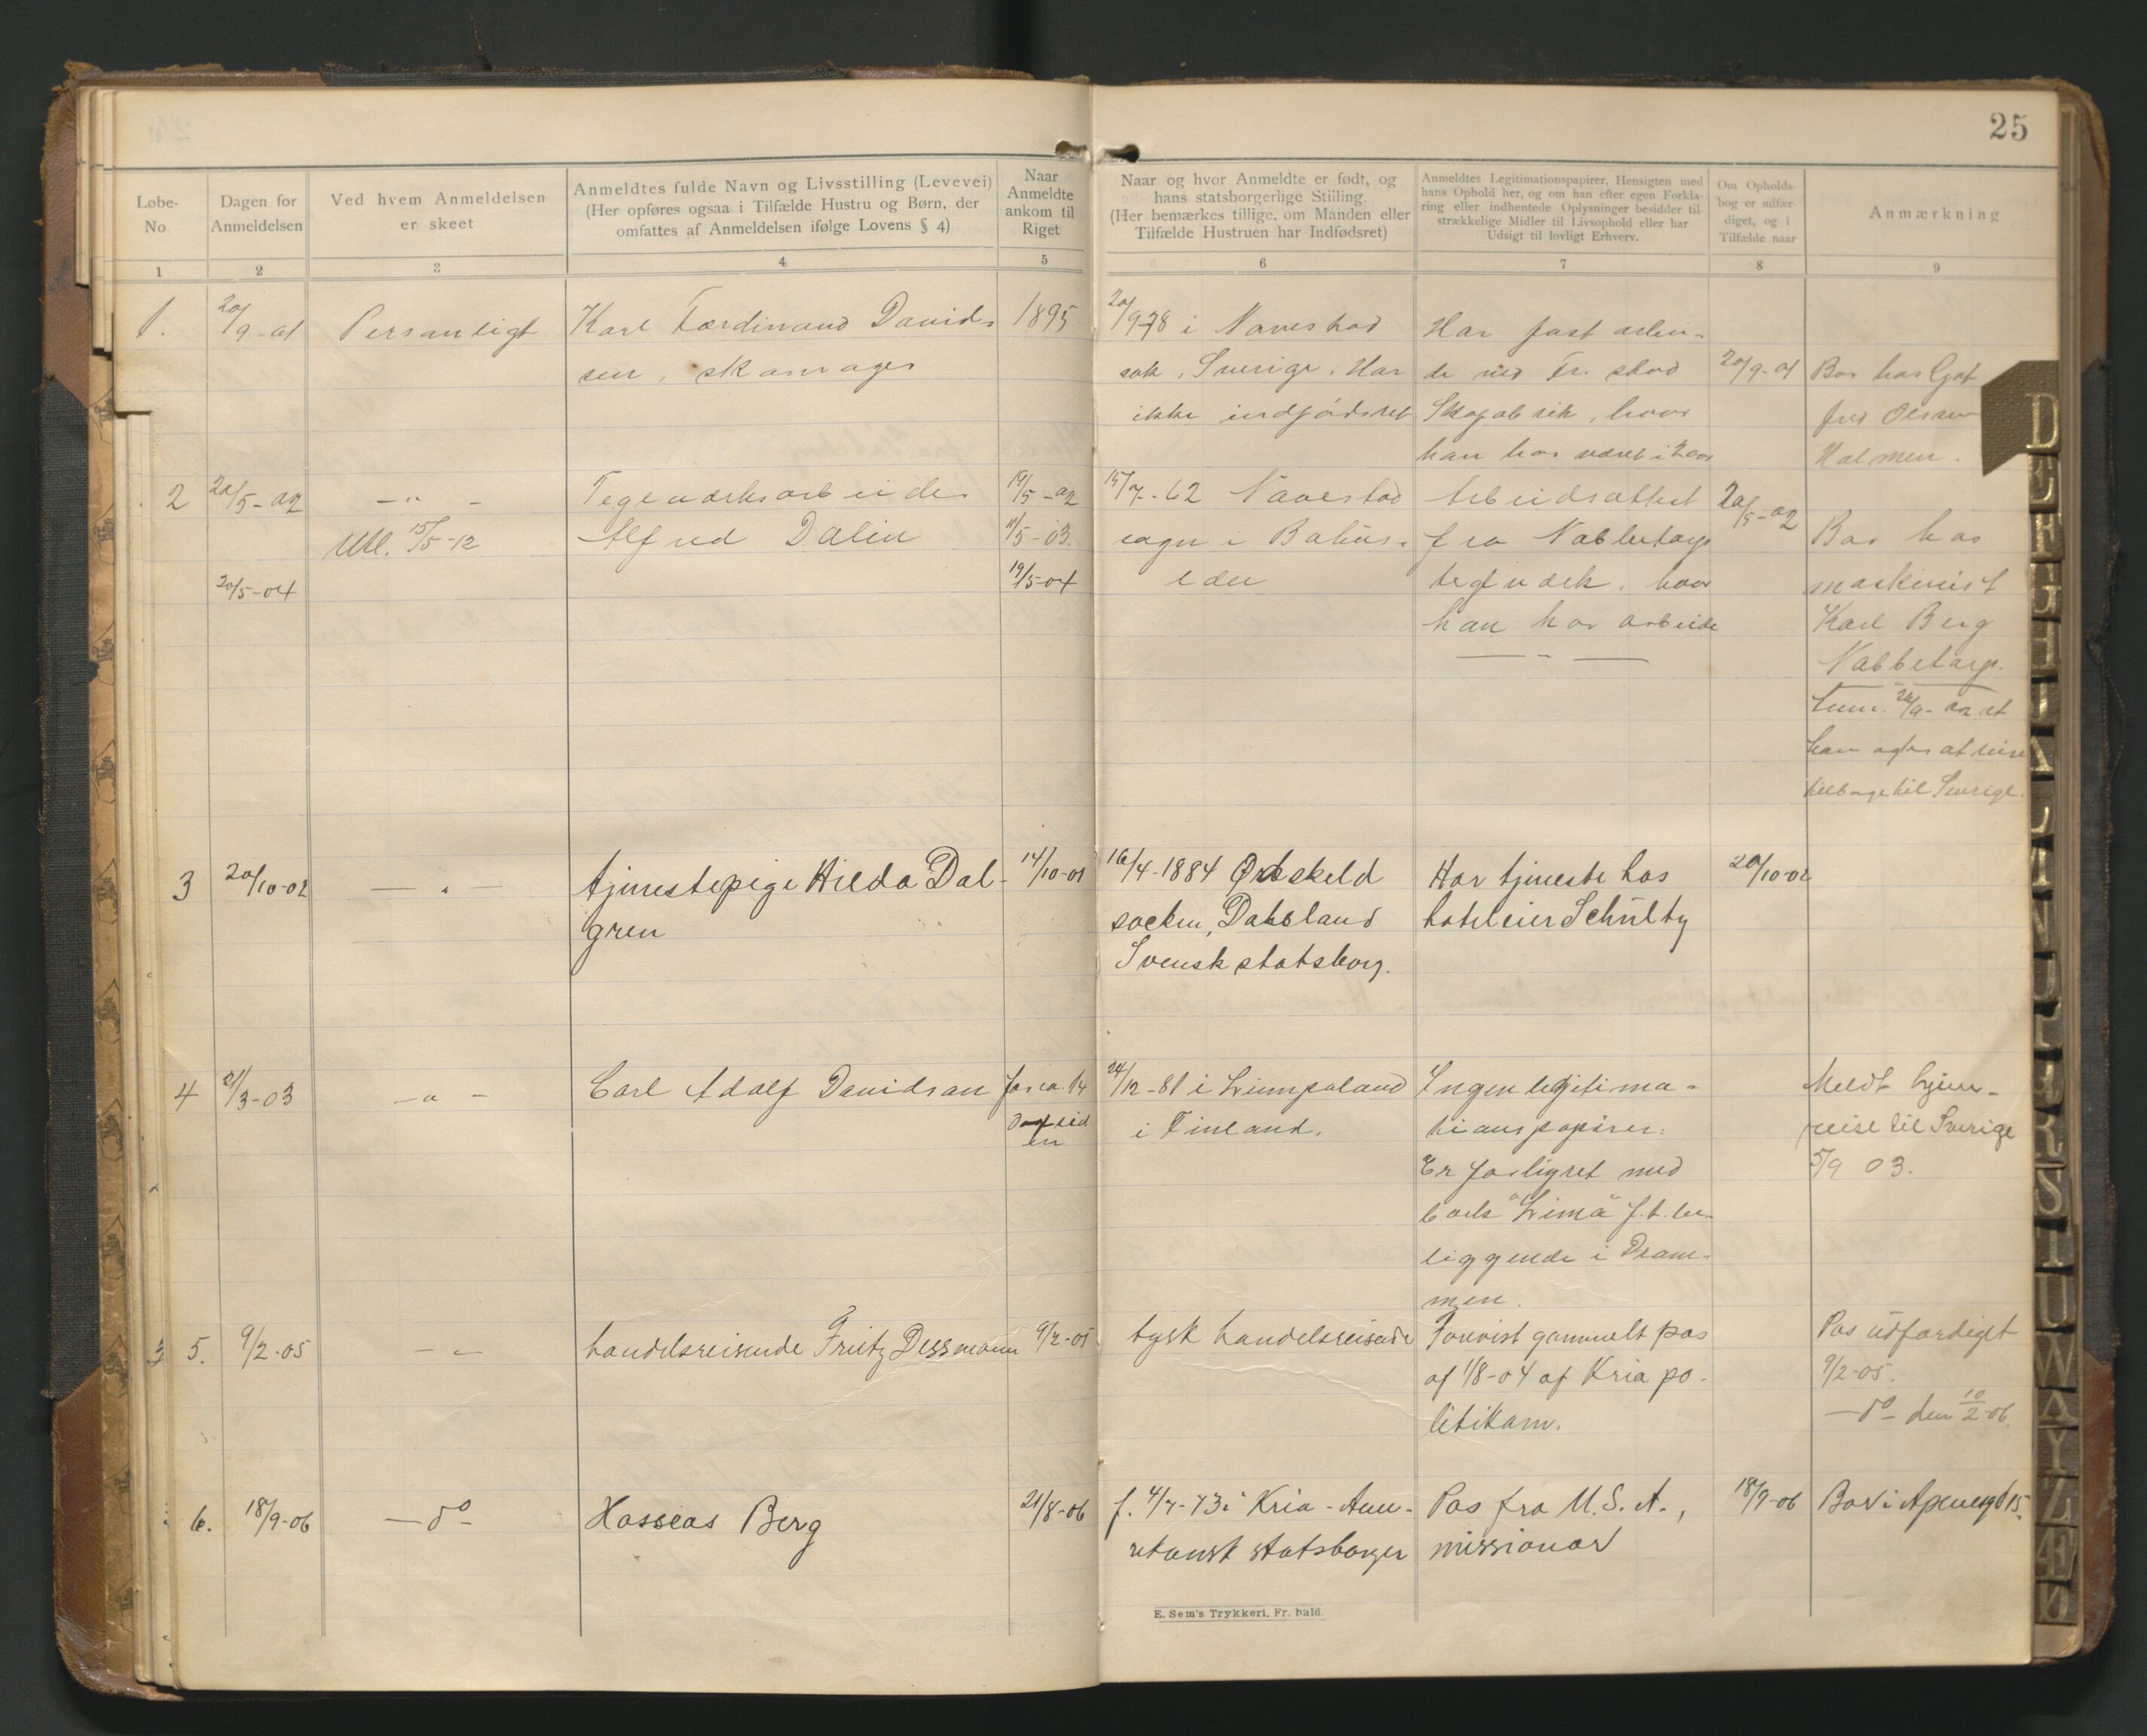 25
Løbe-
No.
Dagen for
Anmeldelsen
Ved hvem Anmeldelsen
er skeet
Anmeldtes fulde Navn og Livsstilling (Levevei)
(Her opføres ogsaa i Tilfælde Hustru og Børn, der
omfattes af Anmeldelsen ifølge Lovens § 4)
Naar
Anmeldte
ankom til
Riget
Naar og hvor Anmeldte er født, og
hans statsborgerlige Stilling.
(Her bemærkes tillige, om Manden eller
Tilfælde Hustruen har Indfødsret)
Anmeldtes Legitimationspapirer, Hensigten med
hans Ophold her, og om han efter egen Forkla-
ring eller indhentede Oplysninger besidder til-
strækkelige Midler til Livsophold eller har
Udsigt til lovligt Erhverv.
Om Opholds-
bog er udfær-
diget, og i
Tilfælde naar
Anmærkning
1
2
3
4
5
6
7
8
9
1.
20/9-01
Personligt
Karl Ferdinand David-
sen, skomager
1895
20/9-78 i Navestad
sok, Sverige. Har
ikke indfødsret
Har fast arbei-
de ved Fr.stad
Skofabrik, hvor
han har været i 2 aar
20/9-01
Bor hos Got
fred Olsen
Holmen.
2
20/5-02
20/5-04
— " —
Utl. 15/5-12
Tegeværksarbeider
Alfred Dalin
19/5-02
11/5-03.
19/5-04
15/7-62 Navestad
sogn i Bahus-
len
Arbeidsattest
fra Nabbetorp
teglværk, hvor
han har arbeide
20/5-02
Bor hos
maskinist
Karl Berg
Nabbetorp.
26/9-02 at
han agter at reise
tilbage til Sverige.
3
20/10-02
— " —
tjenestepige Hilda Dal-
gren
14/10-01
16/4-1884
socken, Dalsland
Svensk statsborg.
Har tjeneste hos
hoteleier Schültz
20/10-02
4
21/3-03
— " —
Carl Adolf Davidsan
for ca. 14
dage sid
en
24/12-81 i Limpaland
i Finland.
Ingen legitima-
tionspapirer.
Er forliset med
bark "Lima" f.t. be-
liggende i Dram-
men.
Meldt hjem-
reise til Sverige
5/9 03.
5.
9/2-05
— " —
handelsreisende Fritz Dessmann
9/2-05
tysk handelsreisende
Forevist gammelt pas
af 1/8-04 af Kria po-
litikam.
Pas udfærdiget
9/2-05.
— do — den 10/2-06.
6.
18/9-06
— do —
Hosseas Berg
21/8-06
f. 4/7-73 i Kria - Ame-
rikansk statsborger
Pas fra U.S.A.,
missionær
18/9-06
Bor i Apenesgd 15.
E. Sem's Trykkeri, Fr. hald.
D
E
F
G
H
I
K
L
M
N
O
P
R
S
T
U
W
A
Y
Z
Æ
Ø